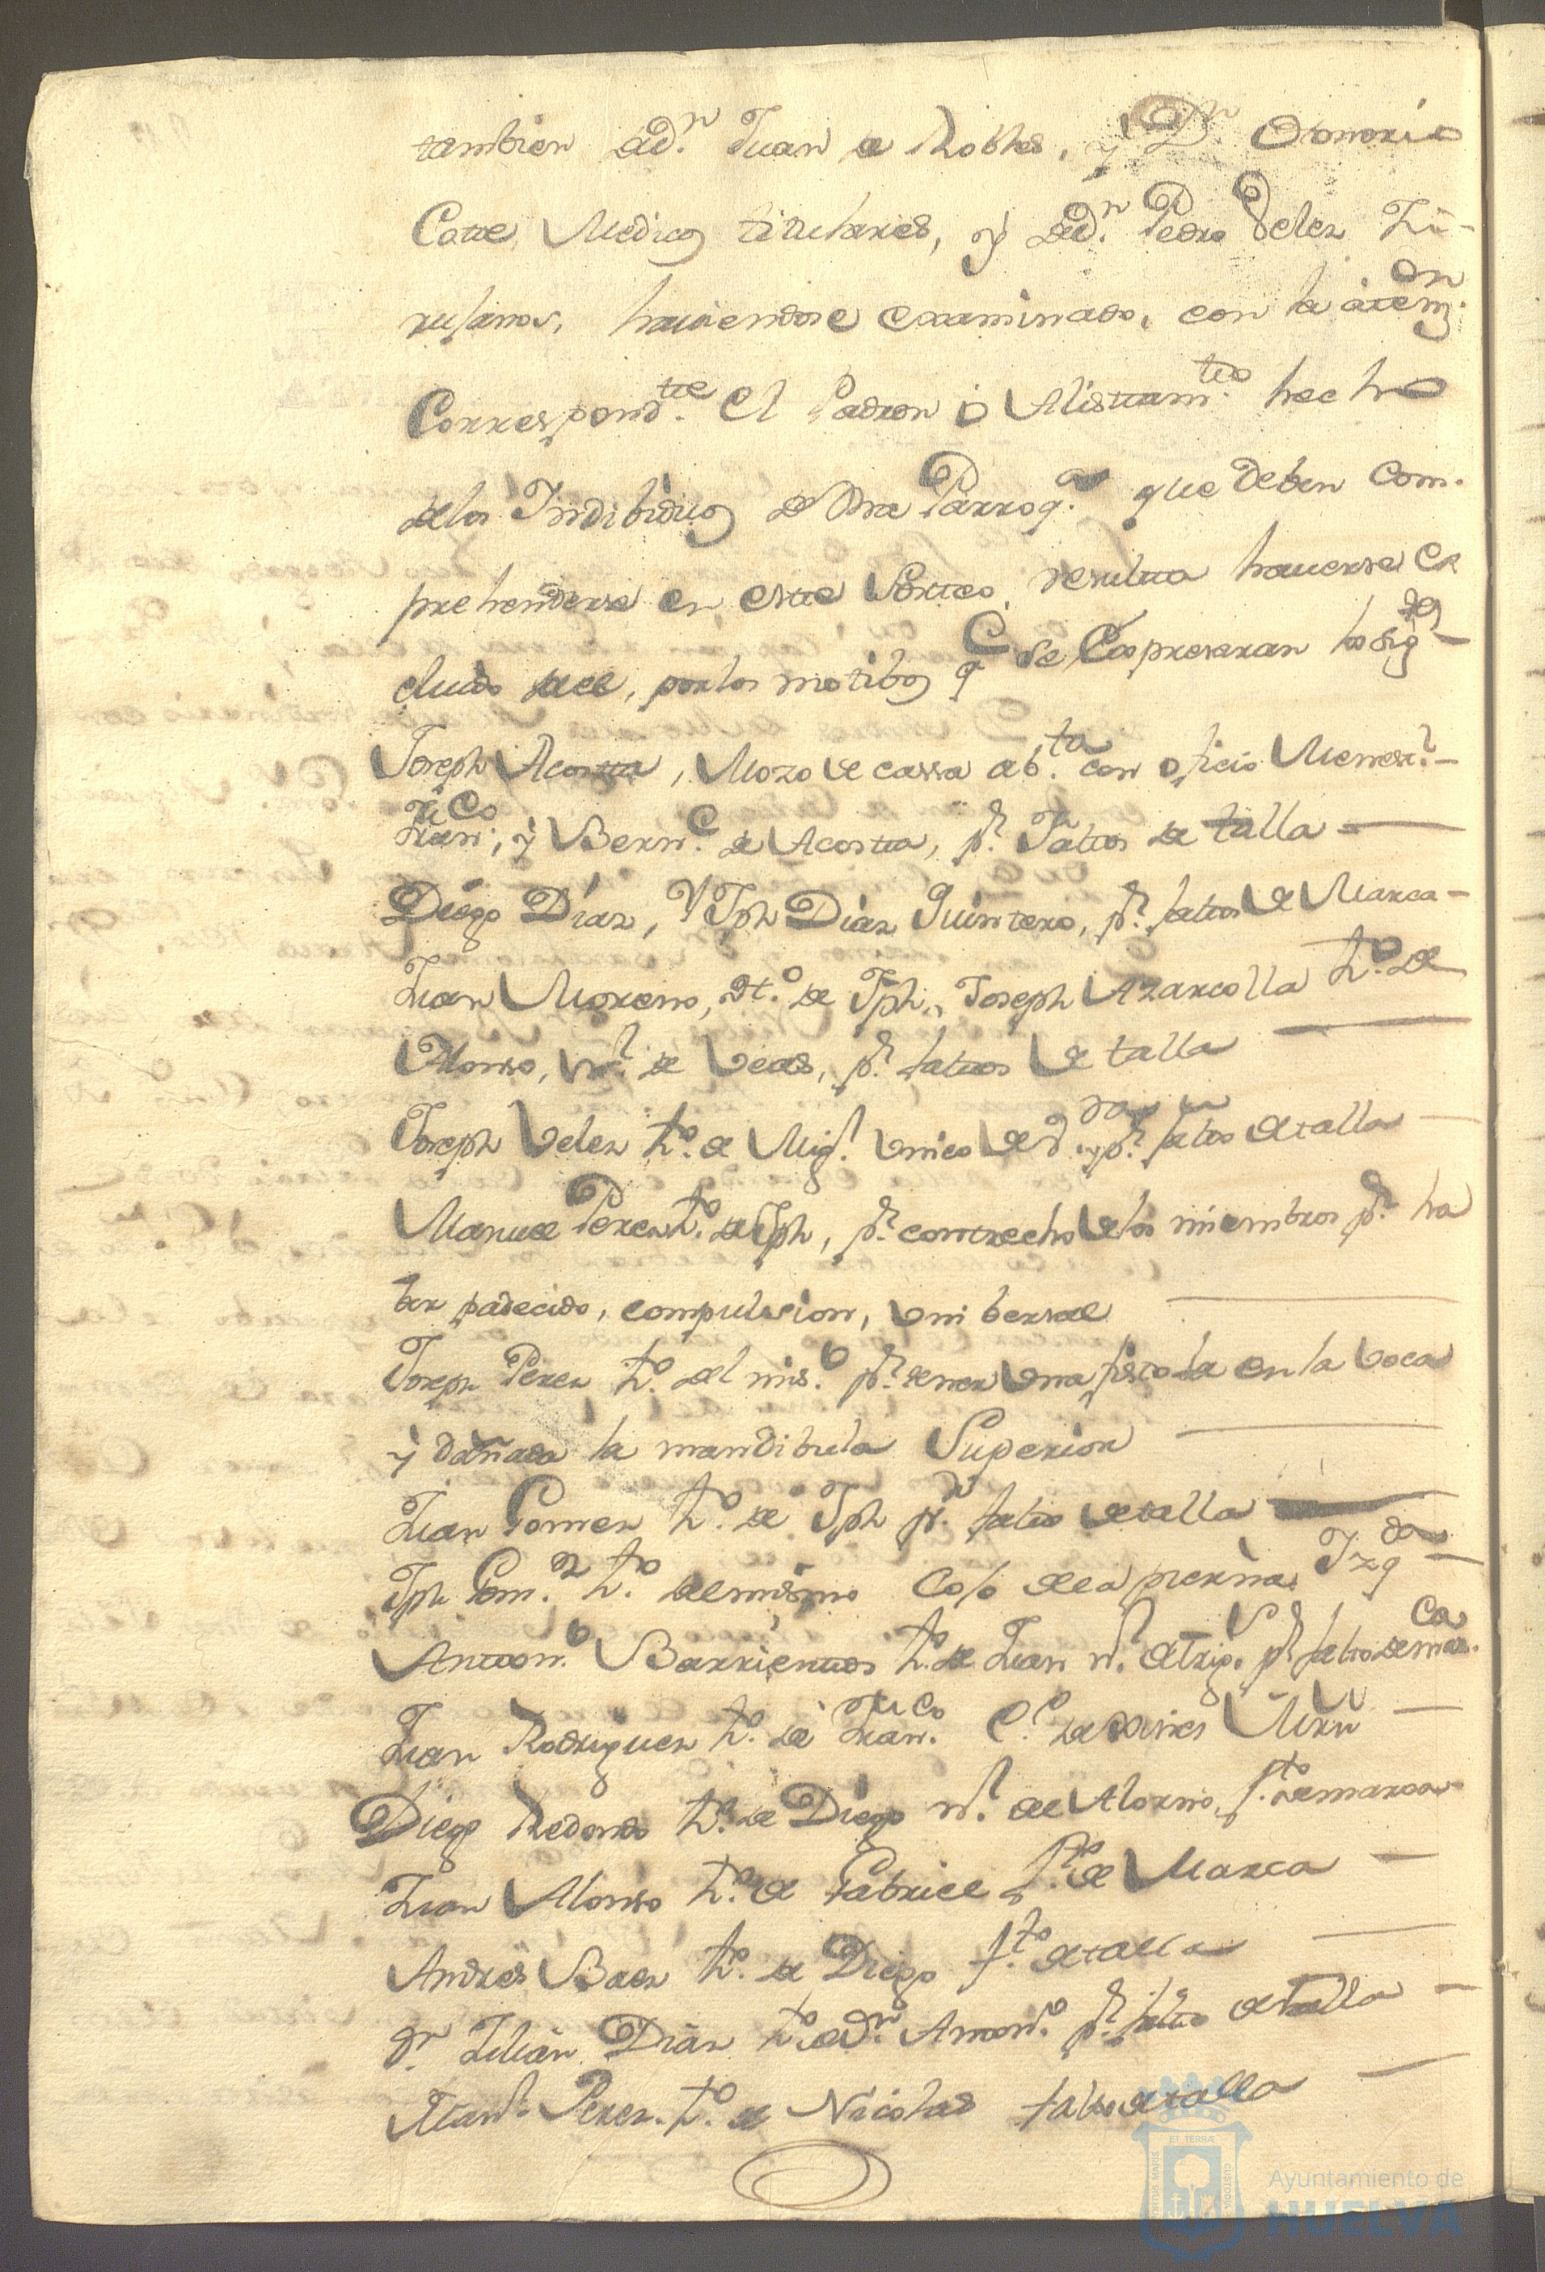 tambien a dn. Juan de Robles, y Dn. Onorio
Medicos titulares, y a dn. Pedro Velez Zi-
rujanos, haviendose examinado, con la atenzon.
Correspondte. el Padron o Alistamto. hecho
delos Indibiduos de dha Parroqa. que deben Com-
prehenderse en este Sorteo, resulta haverse ex
cluido de el, por los motibos qe se Expresaran los sigtes
Joseph Acosta, Mozo de cassa abta. con oficio Menestl.
Franco., y Berne. de Acosta, pr. faltos de talla
Diego Diaz, Y Jph Diaz Quintero, pr. faltos de Marca
Juan Moreno, ho. de Jph., Joseph Azarcolla ho. de
Alonso, nl. de Veas, pr. faltos de talla
Joseph Velez ho. de Migl. Unico de y pr. falto de talla
Manuel Perez ho. de Jph, pr. contrecho de los miembros pr. ha
ber padecido, compulsion, Unibersal
Joseph Perez ho. del mismo pr. tener Una fistola en la Voca
y dañada la mandibula Superior
Juan Gomez ho. de Jph pr. falto de talla
Jph Gomz. ho. del mismo Cojo de la pierna Izqda
Antono. Barrientos ho. de Juan nl. de Trigs. pr. falto de marca.
Juan Rodriguez ho. de Franco.
Diego Redondo ho. de Diego nl. de Alosno, fto. de marca
Juan Alonso ho. de Gabriel fto. de Marca
Andres Baez ho. de Diego fto. de talla
Dn. Julian Diaz ho. de Dn. Antono. pr. falto de talla
Manl. Perez ho. de Nicolas falto de talla
PORTUS MARIS ET TERRÆ CUSTODIA
Ayuntamiento de
HUELVA